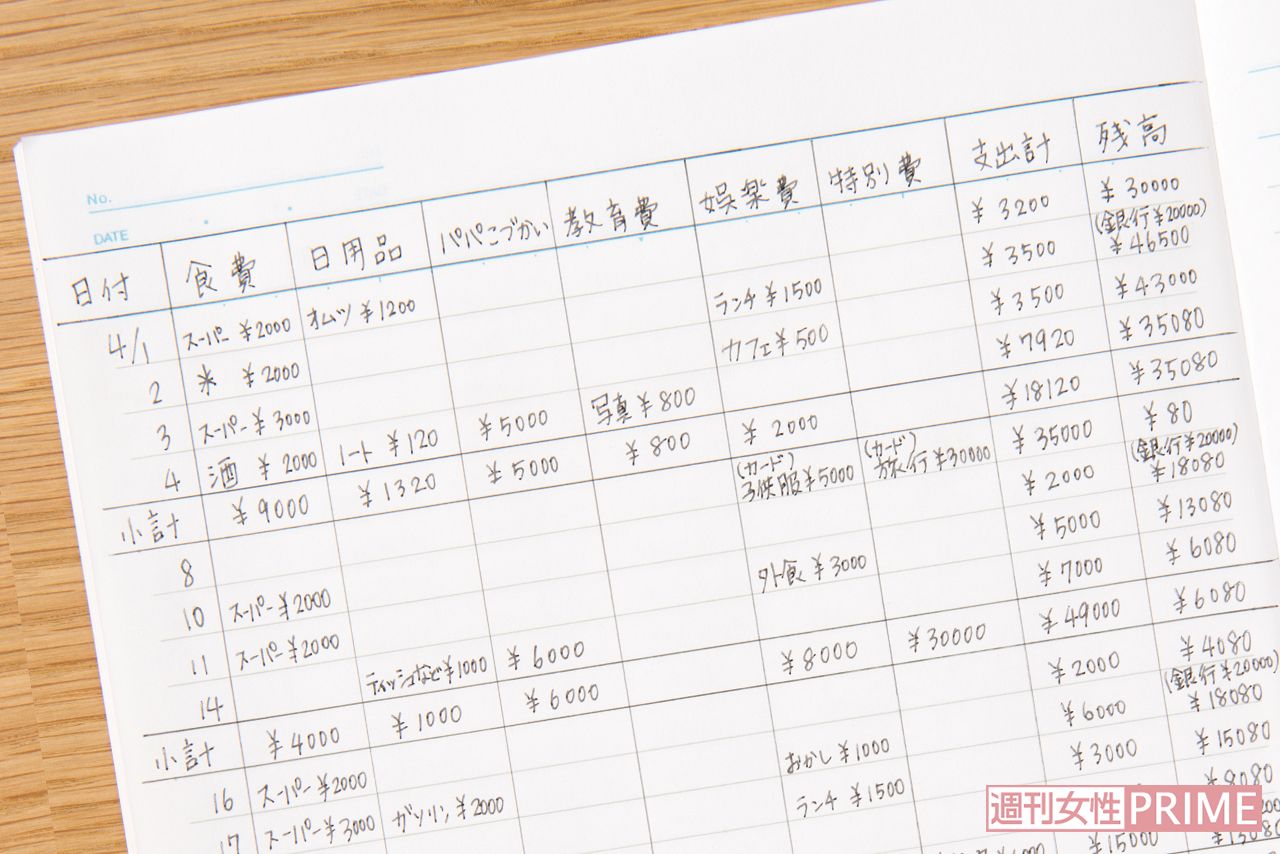 No.
DATE
日付 食費 日用品 パパこづかい 教育費 娯楽費 特別費 支出計 残高
4/1 スーパー ¥2000 オムツ ¥1200 ¥3200 ¥30000
(銀行¥20000)
2 米 ¥2000 ランチ ¥1500 ¥3500 ¥46500
3 スーパー ¥3000 カフェ ¥500 ¥3500 ¥43000
4 酒 ¥2000 ノート ¥120 ¥5000 写真 ¥800 ¥7920 ¥35080
小計 ¥9000 ¥1320 ¥5000 ¥800 ¥2000 ¥18120 ¥35080
(カード) (カード)
8 子供服¥5000 旅行¥30000 ¥35000 ¥80
(銀行¥20000)
10 スーパー ¥2000 ¥2000 ¥18080
11 スーパー ¥2000 外食 ¥3000 ¥5000 ¥13080
14 ティッシュなど¥1000 ¥6000 ¥7000 ¥6080
小計 ¥4000 ¥1000 ¥6000 ¥8000 ¥30000 ¥49000 ¥6080
16 スーパー ¥2000 ¥2000 ¥4080
(銀行¥20000)
17 スーパー ¥3000 ガソリン ¥2000 おかし ¥1000 ¥6000 ¥18080
ランチ ¥1500 ¥3000 ¥15080
¥8080
¥15000 ¥13080
週刊女性PRIME